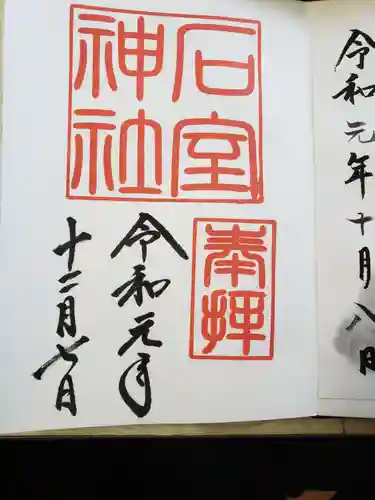 令和元年十月八日
石室
神社
奉拝
令和元年
十二月七日